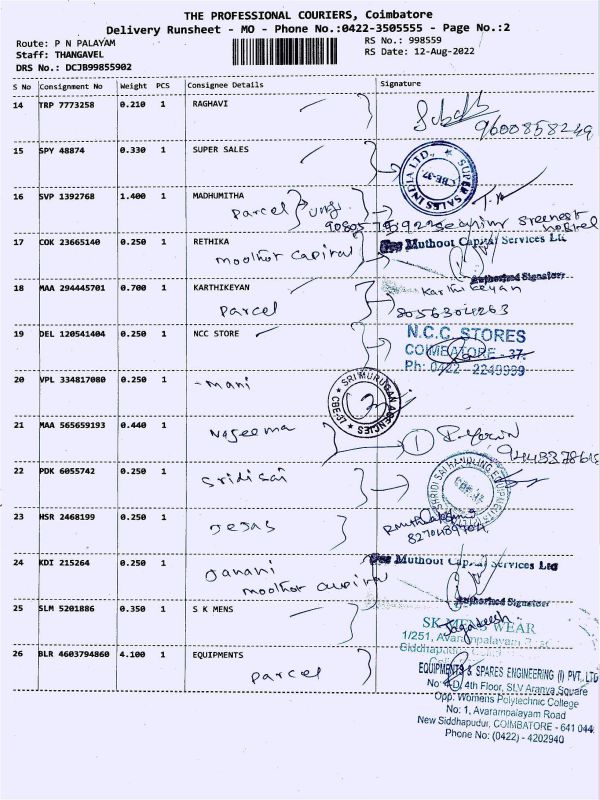 THE PROFESSIONAL COURIERS, Coimbatore
Delivery Runsheet - MO - Phone No.:0422-3505555 - Page No.:2
Route: P N PALAYAM
Staff: THANGAVEL
DRS No.: DCJB99855902
RS No.: 998559
RS Date: 12-Aug-2022
S No Consignment No Weight PCS Consignee Details Signature
14 TRP 7773258 0.210 1 RAGHAVI
9600858249
15 SPY 48874 0.330 1 SUPER SALES
SUPER SALES INDIA LTD., CBE-37
16 SVP 1392768 1.400 1 MADHUMITHA
Parcel
17 COK 23665140 0.250 1 RETHIKA
moothot Capital
For Muthoot Capital Services Ltd
Authorised Signatory
18 MAA 294445701 0.700 1 KARTHIKEYAN
Parcel
Karthikeyan
8056304263
19 DEL 120541404 0.250 1 NCC STORE
N.C.C. STORES
COIMBATORE - 37.
Ph: 0422 - 2249999
20 VPL 334817080 0.250 1
mani
SRI MURUGAN AGENCIES CBE-37
21 MAA 565659193 0.440 1
Naseema
1
22 PDK 6055742 0.250 1
Sridisai
SHRIDI SAI HANDLING EQUIPMENTS
23 HSR 2468199 0.250 1
Dejas
24 KDI 215264 0.250 1
Janani
moothot capital
For Muthoot Capital Services Ltd
Authorised Signatory
25 SLM 5201886 0.350 1 S K MENS
Jagadeesh
SK MENS WEAR
1/251, Avarampalayam
Siddhapudur
26 BLR 4603794860 4.100 1 EQUIPMENTS
Parcel
EQUIPMENTS & SPARES ENGINEERING (I) PVT. LTD
No: 4-D/ 4th Floor, SLV Aranya Square
Opp. Womens Polytechnic College
No: 1, Avarampalayam Road
New Siddhapudur, COIMBATORE - 641 044.
Phone No: (0422) - 4202940